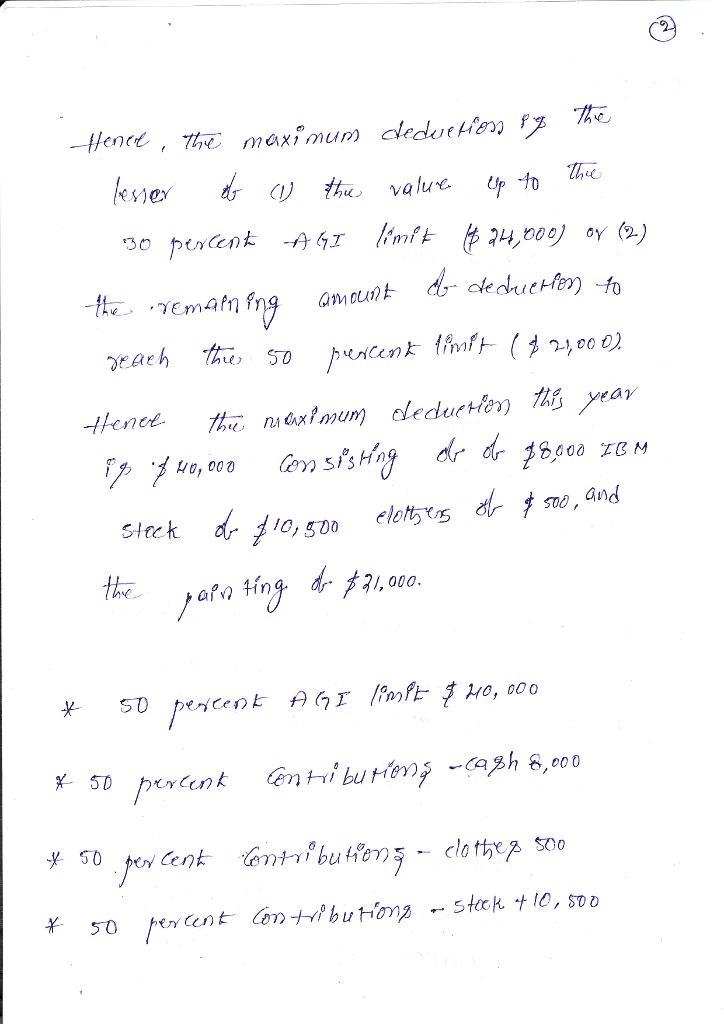 2
Hence, the maximum deduction is the
lesser of (1) the value up to the
30 percent AGI limit ($24,000) or (2)
the remaining amount of deduction to
reach the 50 percent limit ($21,000).
Hence the maximum deduction this year
is $40,000 consisting of of $8,000 IBM
stock of $10,500 clothers of $500, and
the painting of $21,000.
* 50 percent AGI limit $40,000
* 50 percent contributions - cash 8,000
* 50 percent contributions - clothes 500
* 50 percent contributions - stock + 10,500